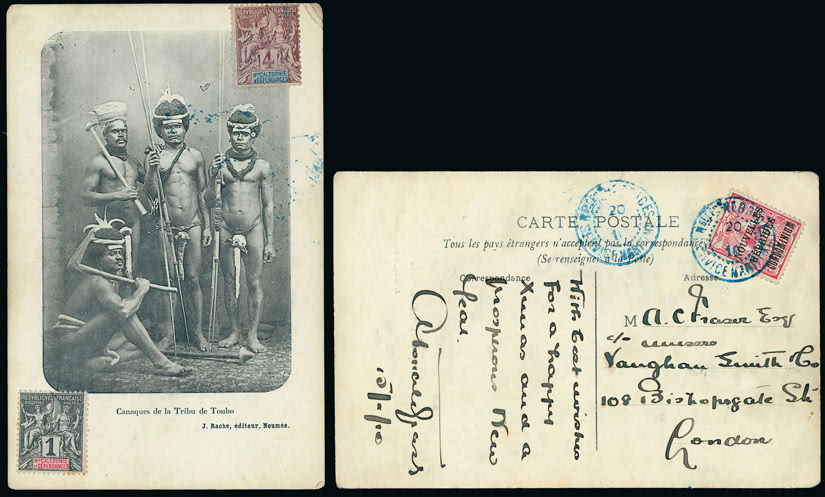 RÉPUBLIQUE FRANÇAISE
4
Nlle CALEDONIE
ET DÉPENDANCES
Canaques de la Tribu de Toubo
J. Rache, éditeur, Nouméa.
RÉPUBLIQUE FRANÇAISE
1
Nlle CALEDONIE
ET DÉPENDANCES
CARTE POSTALE
Tous les pays étrangers n'acceptent pas la correspondance
(Se renseigner à la Poste)
Correspondance
Adresse
20
10
20
10
NOUVELLES
HÉBRIDES
CONDOMINIUM
With best wishes
for a happy
Xmas and a
prosperous New
Year.
M A. C Fraser Esq
c/o
Vaughan Smith Co
108 Bishopsgate St
London